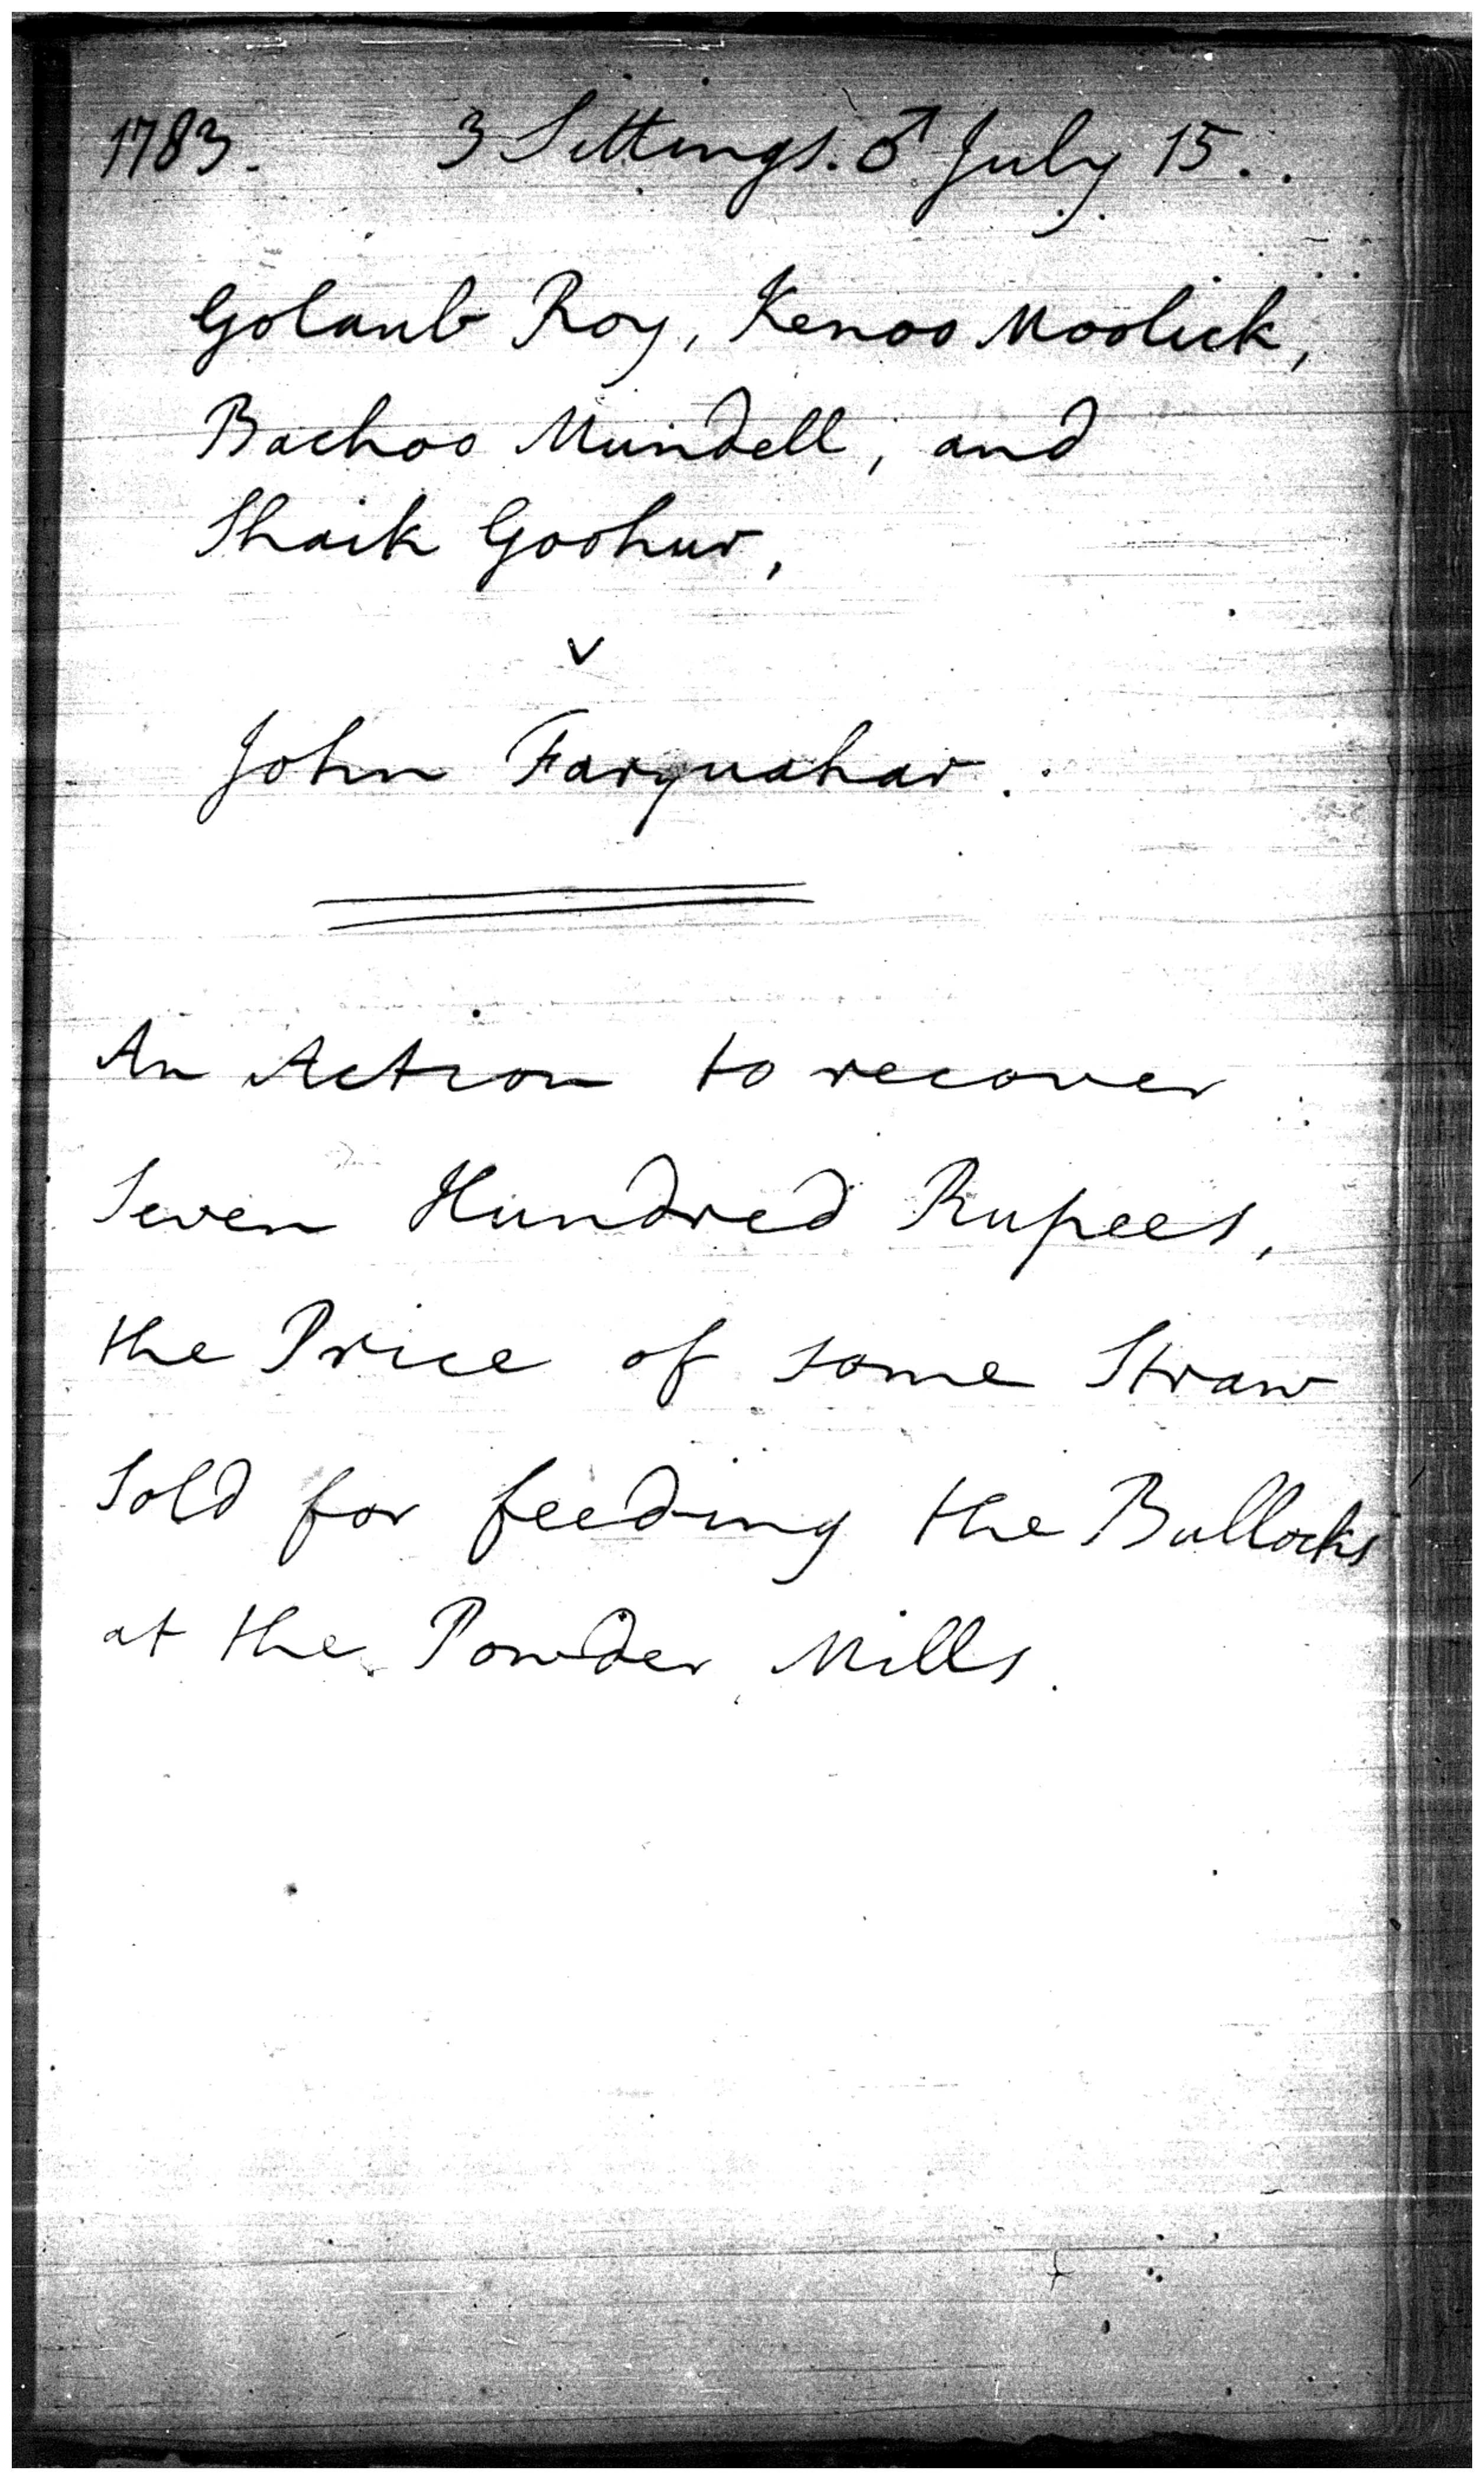 1783. 3 Sittings. ♂ July 15.
Golaub Roy, Kenoo Moolick,
Bachoo Mundell, and
Shaik Goohur,
v
John Farquahar.
An Action to recover
Seven Hundred Rupees,
the Price of some Straw
Sold for feeding the Bullocks
at the Powder Mills.